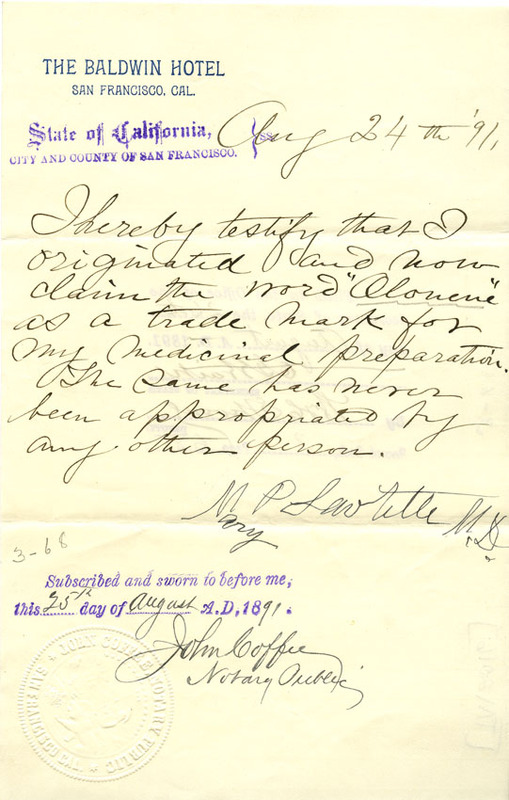 THE BALDWIN HOTEL
SAN FRANCISCO, CAL.
State of California,
CITY AND COUNTY OF SAN FRANCISCO. } SS.
Aug 24th '91,
I hereby testify that I
originated and now
claim the word "Olonene"
as a trade mark for
my medicinal preparation.
The same has never
been appropriated by
any other person.
Mary P Sawtelle M.D.
3-68
Subscribed and sworn to before me,
this 25th day of August A.D, 1891.
John Coffee
Notary Public
JOHN COFFEE NOTARY PUBLIC
SAN FRANCISCO CAL.